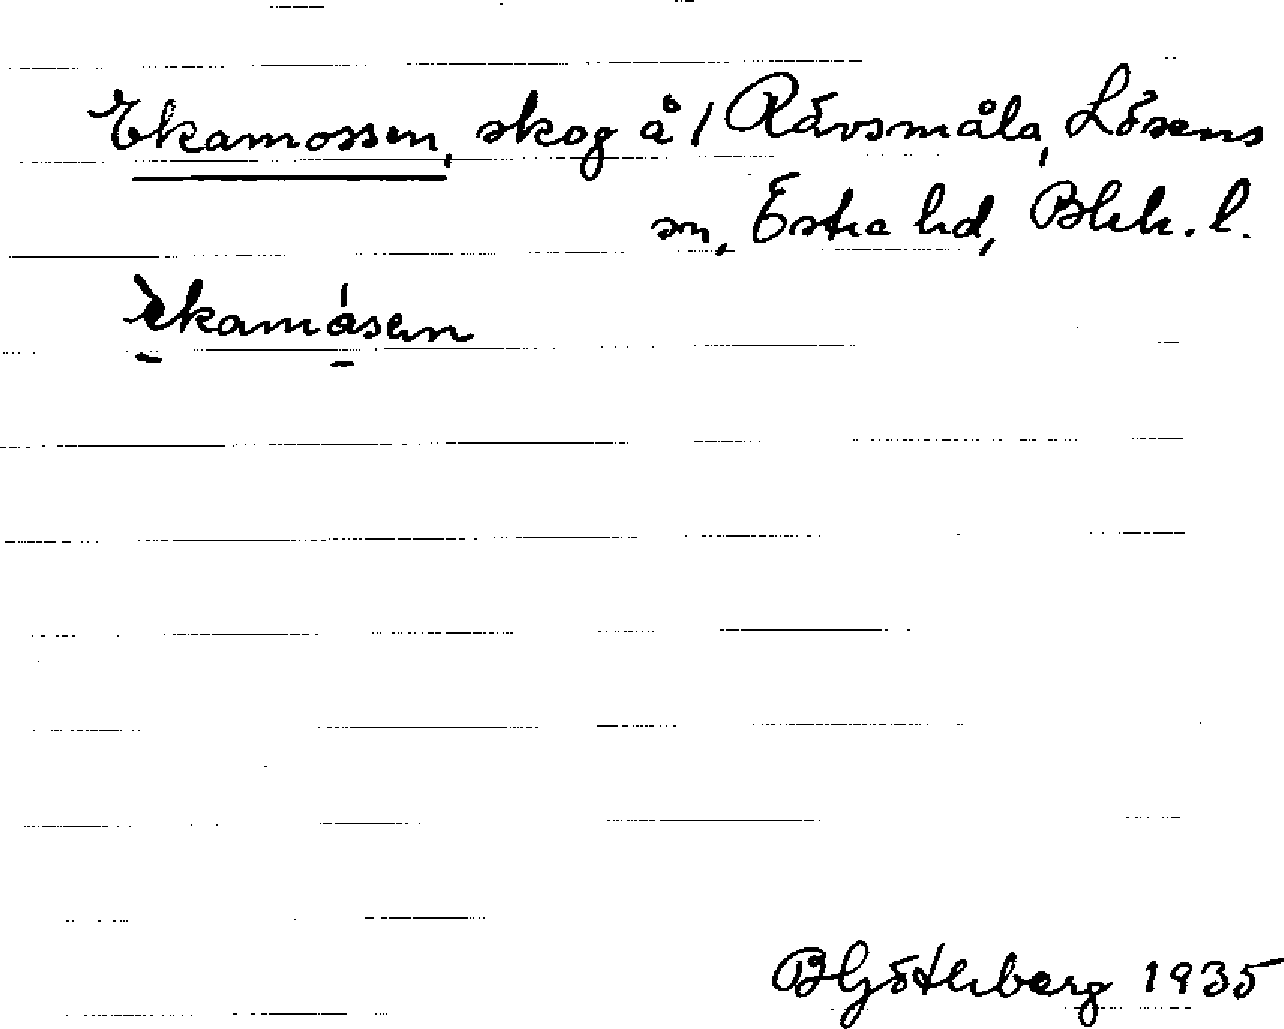 Ekamossen, skog å 1 Rävsmåla, Lösens
sn, Östra hd, Blek. l.
ekamåsen
B Göthberg 1935